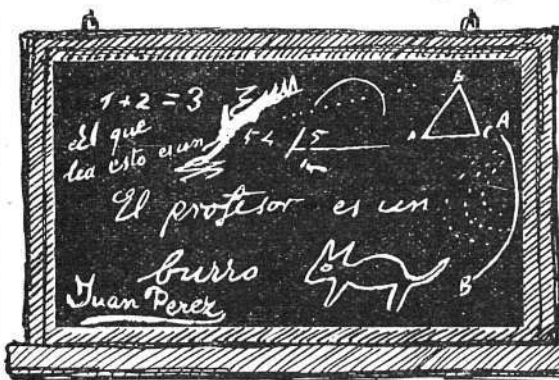 1+2=3
el que
lea esto es un
54 5
A
B
El profesor es un
burro
Juan Perez